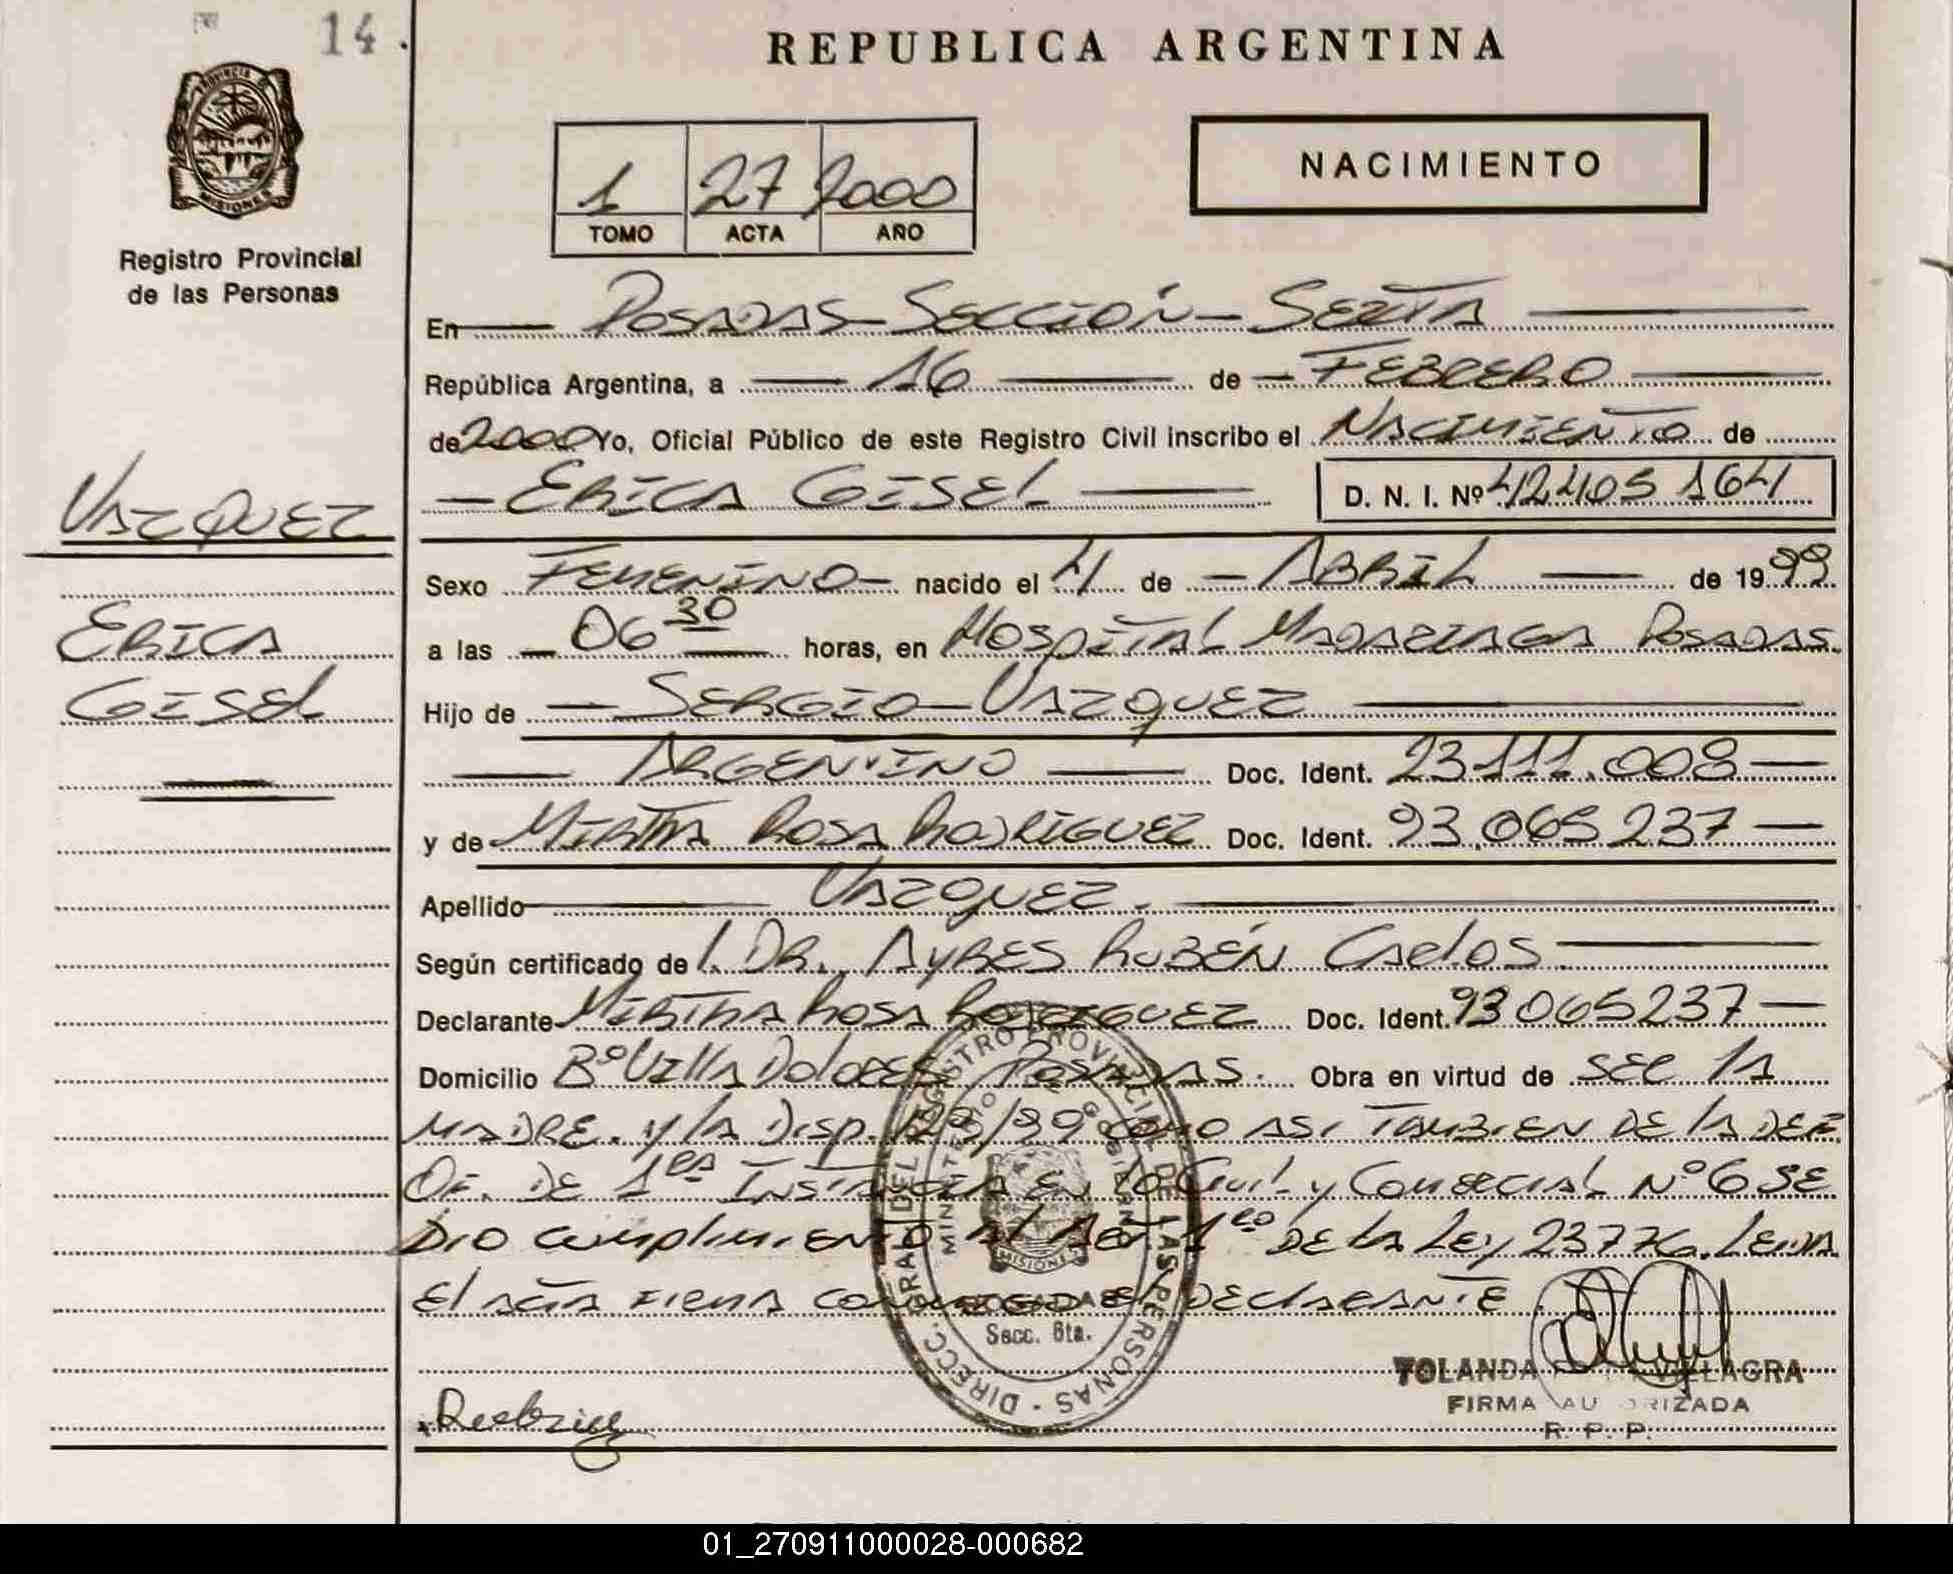 14.
REPUBLICA ARGENTINA
PROVINCIA
MISIONES
NACIMIENTO
1 27 2000
TOMO ACTA AÑO
Registro Provincial
de las Personas
En POSADAS-SECCIÓN-SEXTA
República Argentina, a 16 de FEBRERO
de 2000 Yo, Oficial Público de este Registro Civil inscribo el NACIMIENTO de
ERICA GISEL D. N. I. Nº 42405164
VAZQUEZ
Sexo FEMENINO nacido el 4 de ABRIL de 1999
ERICA
a las 06 30 horas, en HOSPITAL MADARIAGA POSADAS.
GISEL
Hijo de SERGIO VAZQUEZ
ARGENTINO Doc. Ident. 23.111.008
y de MIRTHA ROSA RODRIGUEZ Doc. Ident. 93.065.237
Apellido VAZQUEZ.
Según certificado de l. DR. AYRES RUBÉN CARLOS
Declarante MIRTHA ROSA RODRIGUEZ Doc. Ident. 93065237
Domicilio Bº VILLA DOLORES POSADAS. Obra en virtud de SER LA
MADRE. Y LA DISP. /99 COMO ASI TAMBIEN DE LA DEF.
OF. DE 1ra INSTANCIA EN LO Civil y COMERCIAL Nº 6 SE
DIO CUMPLIMIENTO AL ART 1ro DE LA LEY 23776. LEIDA
El ACTA FIRMA CONMIGO EL DECLARANTE.
DIRECC. GRAL DEL REGISTRO PROVINCIAL DE LAS PERSONAS
MINISTERIO DE GOBIERNO
MISIONES
POSADAS
Secc. 6ta.
YOLANDA VILLAGRA
FIRMA AUTORIZADA
R. P. P.
01_270911000028-000682